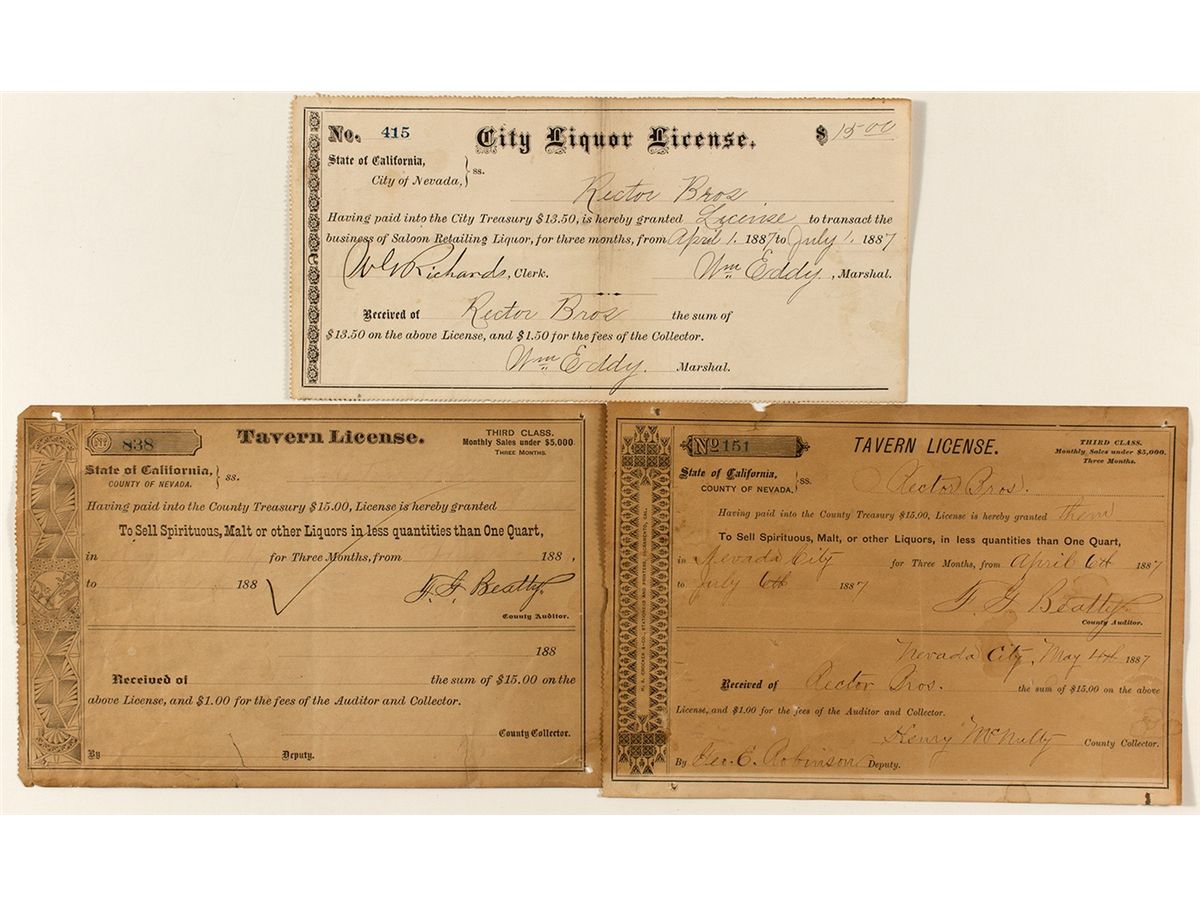 No. 415 City Liquor License. $ 15.00
State of California,
City of Nevada, } ss.
Rector Bros
Having paid into the City Treasury $13.50, is hereby granted License to transact the
business of Saloon Retailing Liquor, for three months, from April 1. 1887 to July 1, 1887
W G Richards, Clerk. Wm Eddy, Marshal.
Received of Rector Bros the sum of
$13.50 on the above License, and $1.50 for the fees of the Collector.
Wm Eddy. Marshal.
No 838 Tavern License. THIRD CLASS.
Monthly Sales under $5,000
THREE MONTHS.
State of California,
COUNTY OF NEVADA. } ss.
Having paid into the County Treasury $15.00, License is hereby granted
To Sell Spirituous, Malt or other Liquors in less quantities than One Quart,
in for Three Months, from 188 ,
to 188
F. G. Beatty.
County Auditor.
188
Received of the sum of $15.00 on the
above License, and $1.00 for the fees of the Auditor and Collector.
County Collector.
By Deputy.
No 151 TAVERN LICENSE. THIRD CLASS.
Monthly Sales under $5,000.
Three Months.
State of California,
COUNTY OF NEVADA, } ss.
Rector Bros.
Having paid into the County Treasury $15.00, License is hereby granted them
To Sell Spirituous, Malt, or other Liquors, in less quantities than One Quart,
in Nevada City for Three Months, from April 6th 1887
to July 6th 1887
F. G. Beatty
County Auditor.
Nevada City, May 4th 1887
Received of Rector Bros. the sum of $15.00 on the above
License, and $1.00 for the fees of the Auditor and Collector.
Henry McNulty County Collector.
By Geo. E. Robinson Deputy.